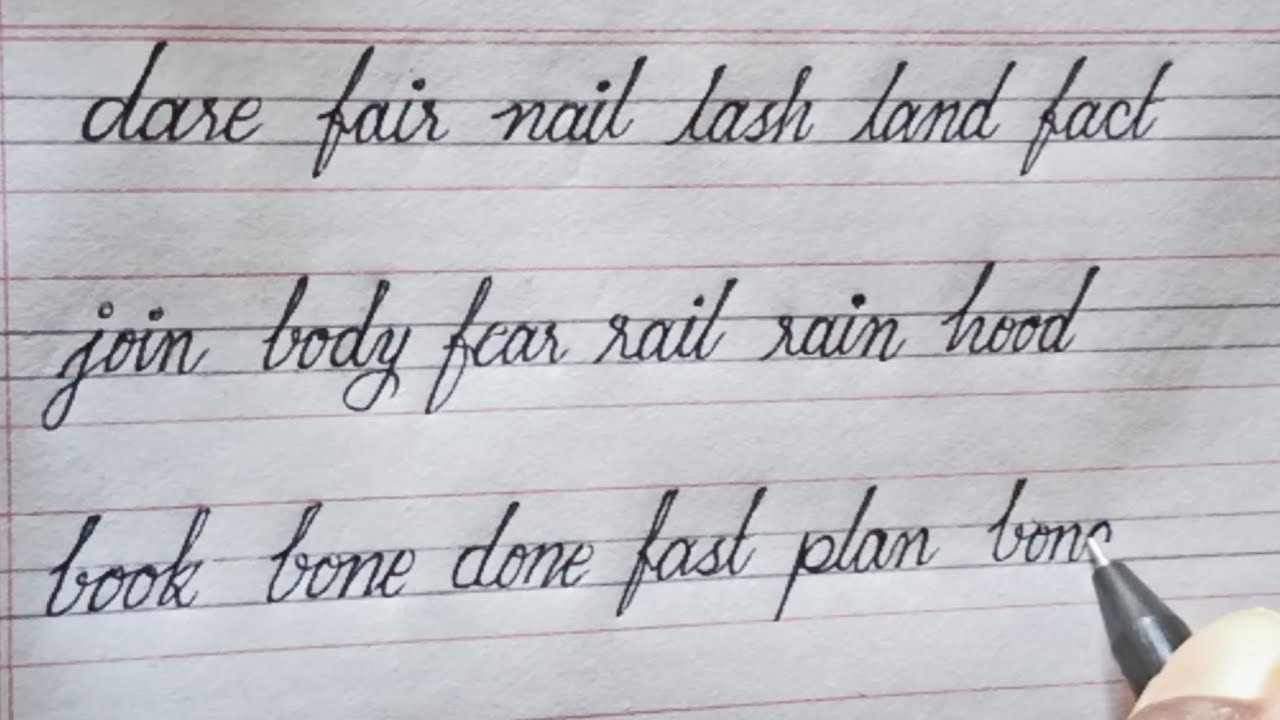 dare fair nail lash land fact
join body fear rail rain hood
book bone done fast plan